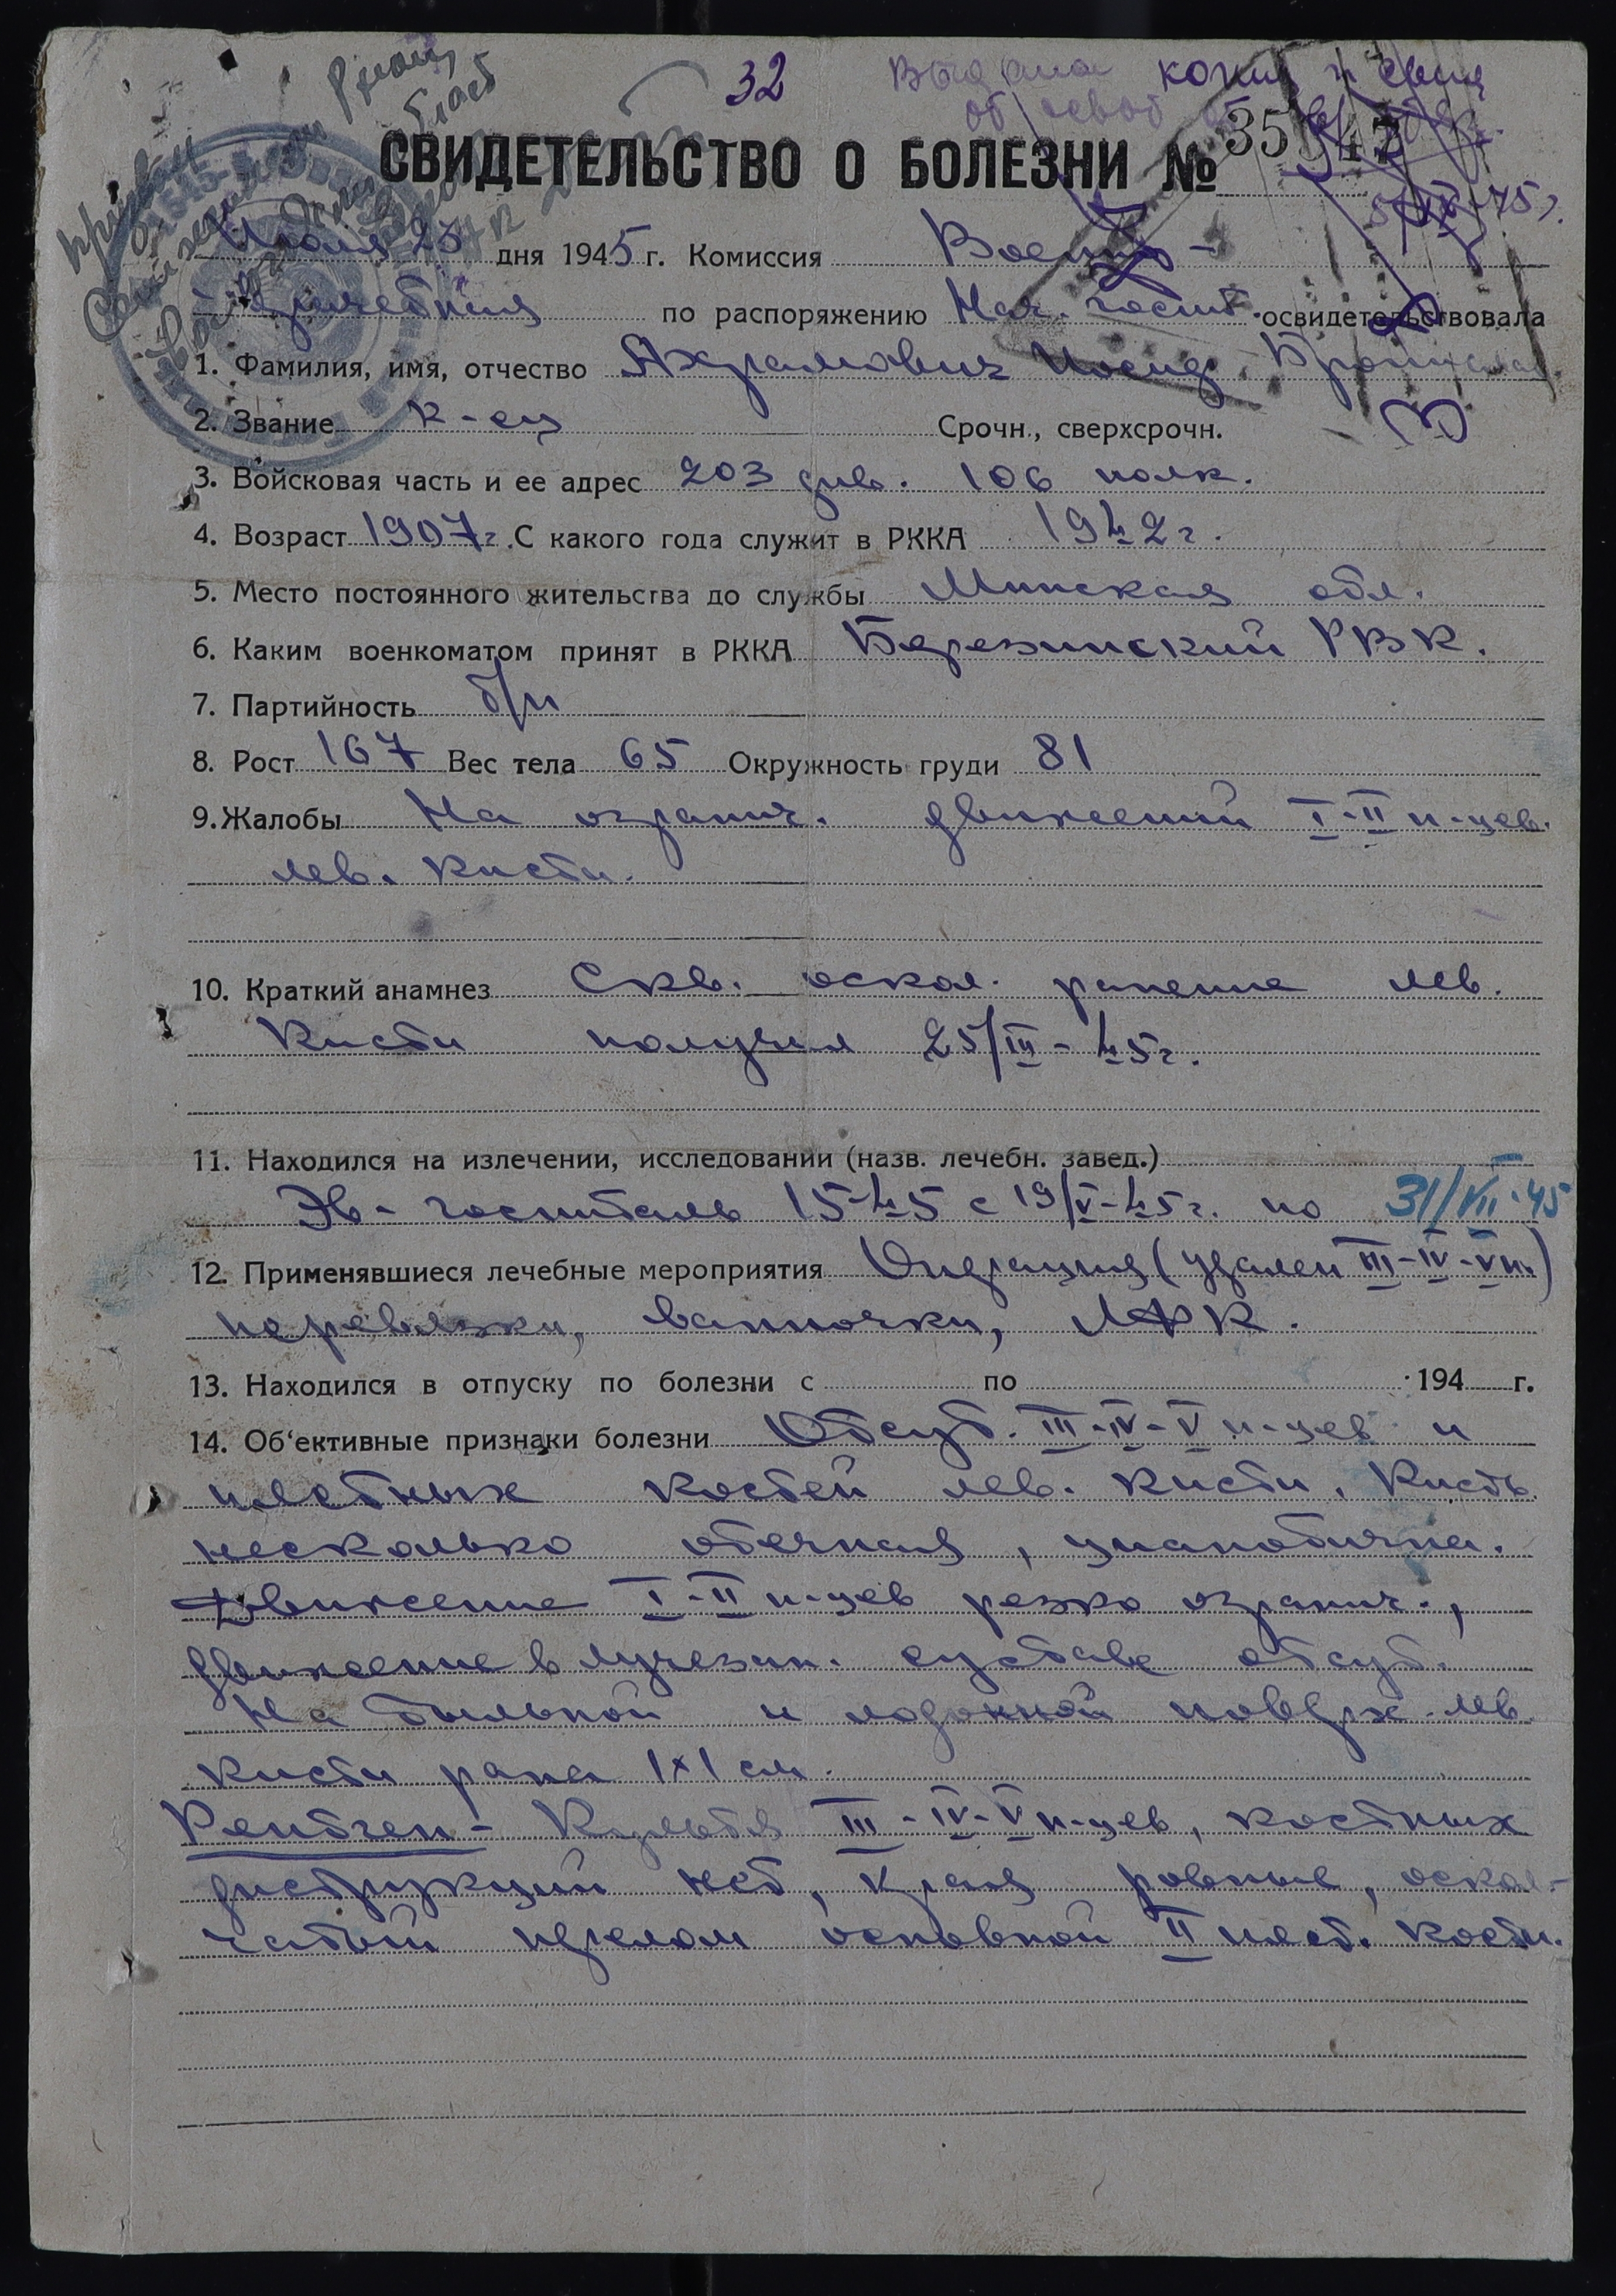 32
копия
СВИДЕТЕЛЬСТВО О БОЛЕЗНИ №
Июля 23 дня 1945 г. Комиссия Военно-
врачебная по распоряжению Нач. госпит. освидетельствовала
1. Фамилия, имя, отчество Ахрамович Иосиф
2. Звание к-ец Срочн., сверхсрочн.
3. Войсковая часть и ее адрес 203 див. 106 полк.
4. Возраст 1907 г. С какого года служит в РККА 1942 г.
5. Место постоянного жительства до службы Минская обл.
6. Каким военкоматом принят в РККА Березинский РВК.
7. Партийность б/п
8. Рост 167 Вес тела 65 Окружность груди 81
9. Жалобы На огранич. движений I-II п-цев.
лев. кисти.
10. Краткий анамнез Скв. оскол. ранение лев.
кисти получил 25/III-45г.
11. Находился на излечении, исследовании (назв. лечебн. завед.)
Эв-госпиталь 1545 с 19/V-45г. по 31/VII-45
12. Применявшиеся лечебные мероприятия Операция (удален III-IV-V п.)
перевязки, ванночки, ЛФК.
13. Находился в отпуску по болезни с по 194 г.
14. Об'ективные признаки болезни Отсут. III-IV-V п-цев и
пястных костей лев. кисти. Кисть
несколько отечная, цианотична.
Движение I-II п-цев резко огранич.,
движение в лучезап. суставе отсут.
На тыльной и ладонной поверх. лев.
кисти рана 1х1 см.
Рентген- Культя III-IV-V п-цев, костных
деструкций нет, края ровные, оскол-
чатый перелом основной II пяст. кости.